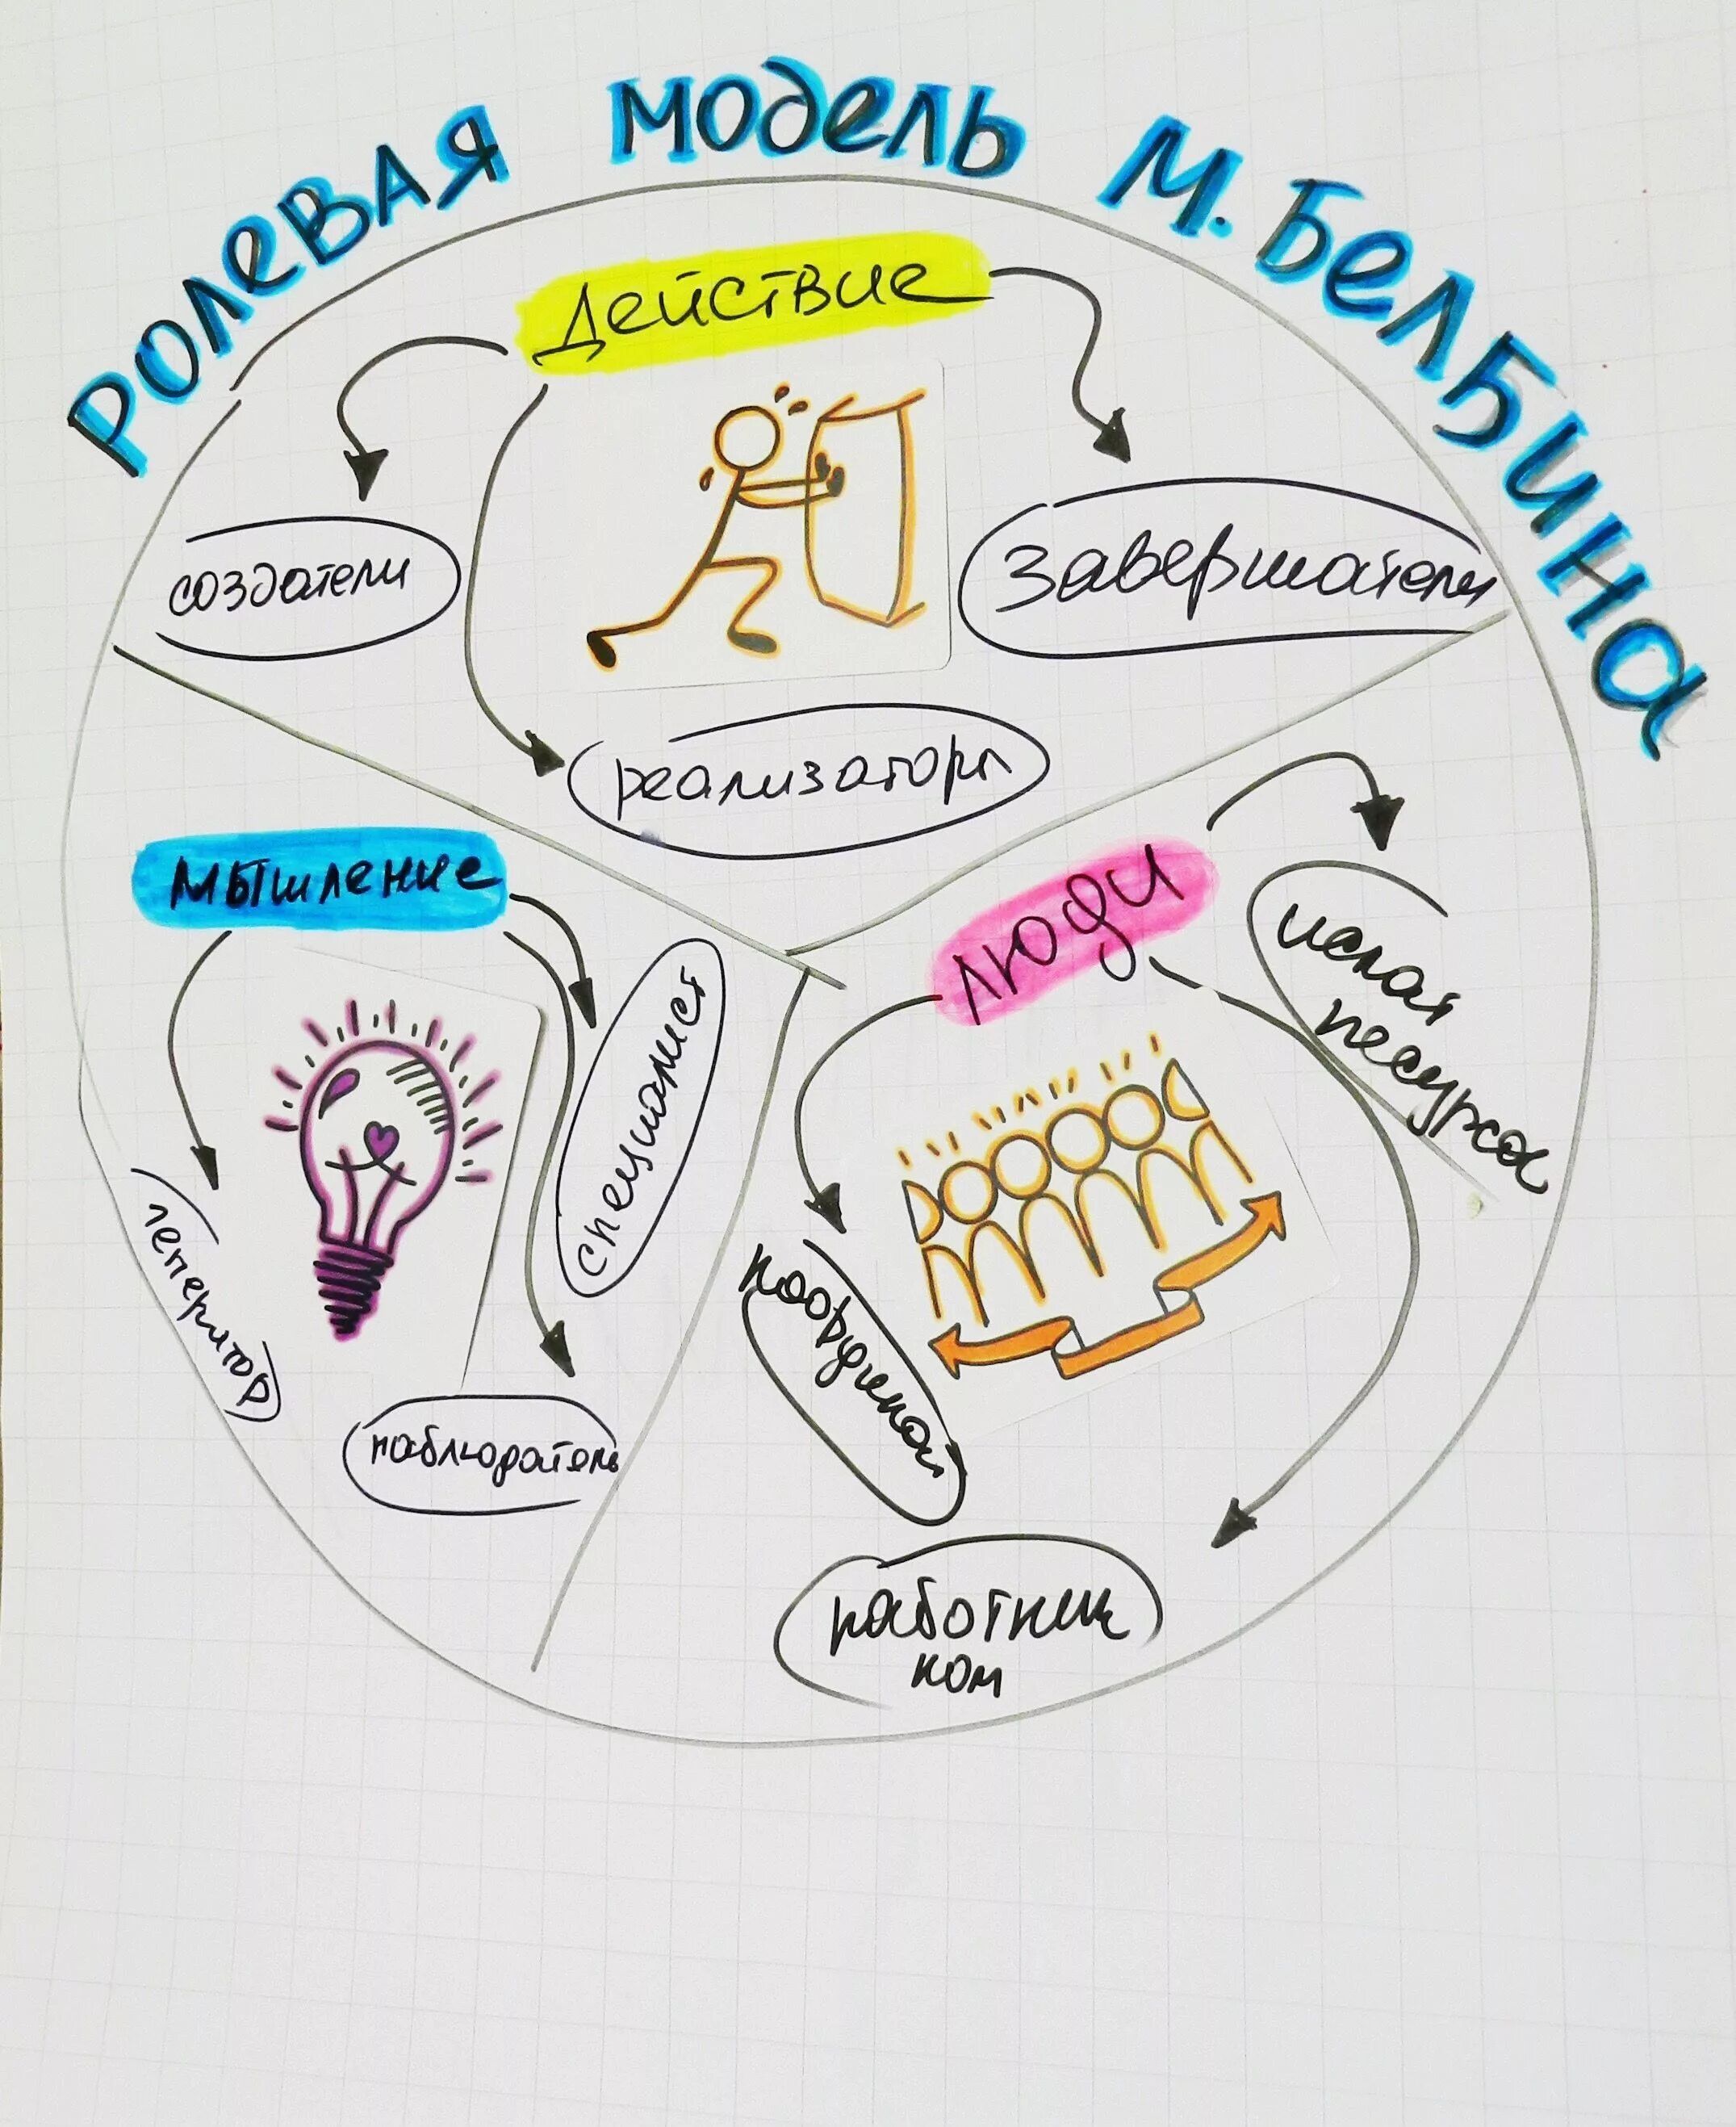 Ролевая модель М. Белбина
Действие
создатели
завершатели
реализаторы
мышление
специалист
генератор
наблюдатель
люди
искат
ресурса
координат
работник
ком